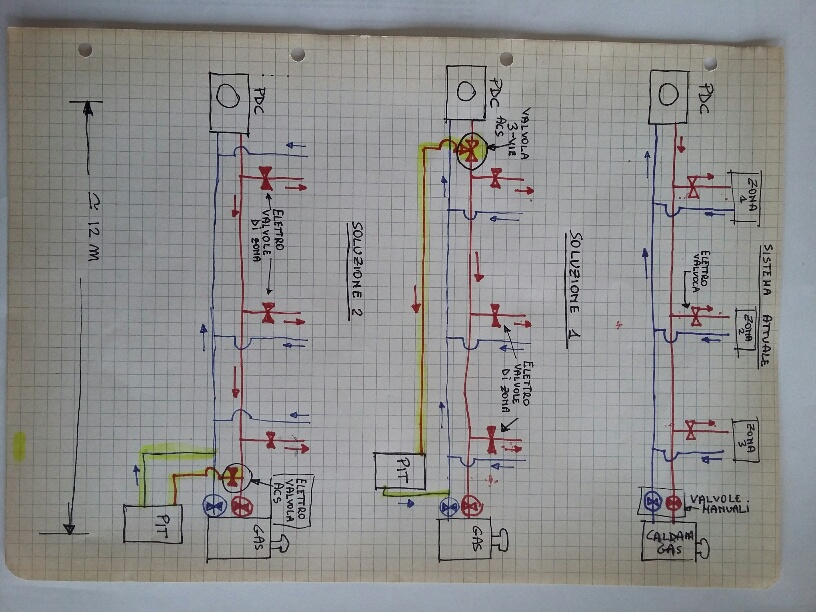 SISTEMA ATTUALE
PDC
ZONA
1
ELETTRO
VALVOLA
ZONA
2
ZONA
3
VALVOLE
MANUALI
CALDAIA
GAS
SOLUZIONE 1
PDC
VALVOLA
3-VIE
ACS
ELETTRO
VALVOLE
DI ZONA
PIT
GAS
SOLUZIONE 2
PDC
ELETTRO
VALVOLE
DI ZONA
ELETTRO
VALVOLA
ACS
PIT
GAS
~ 12 M